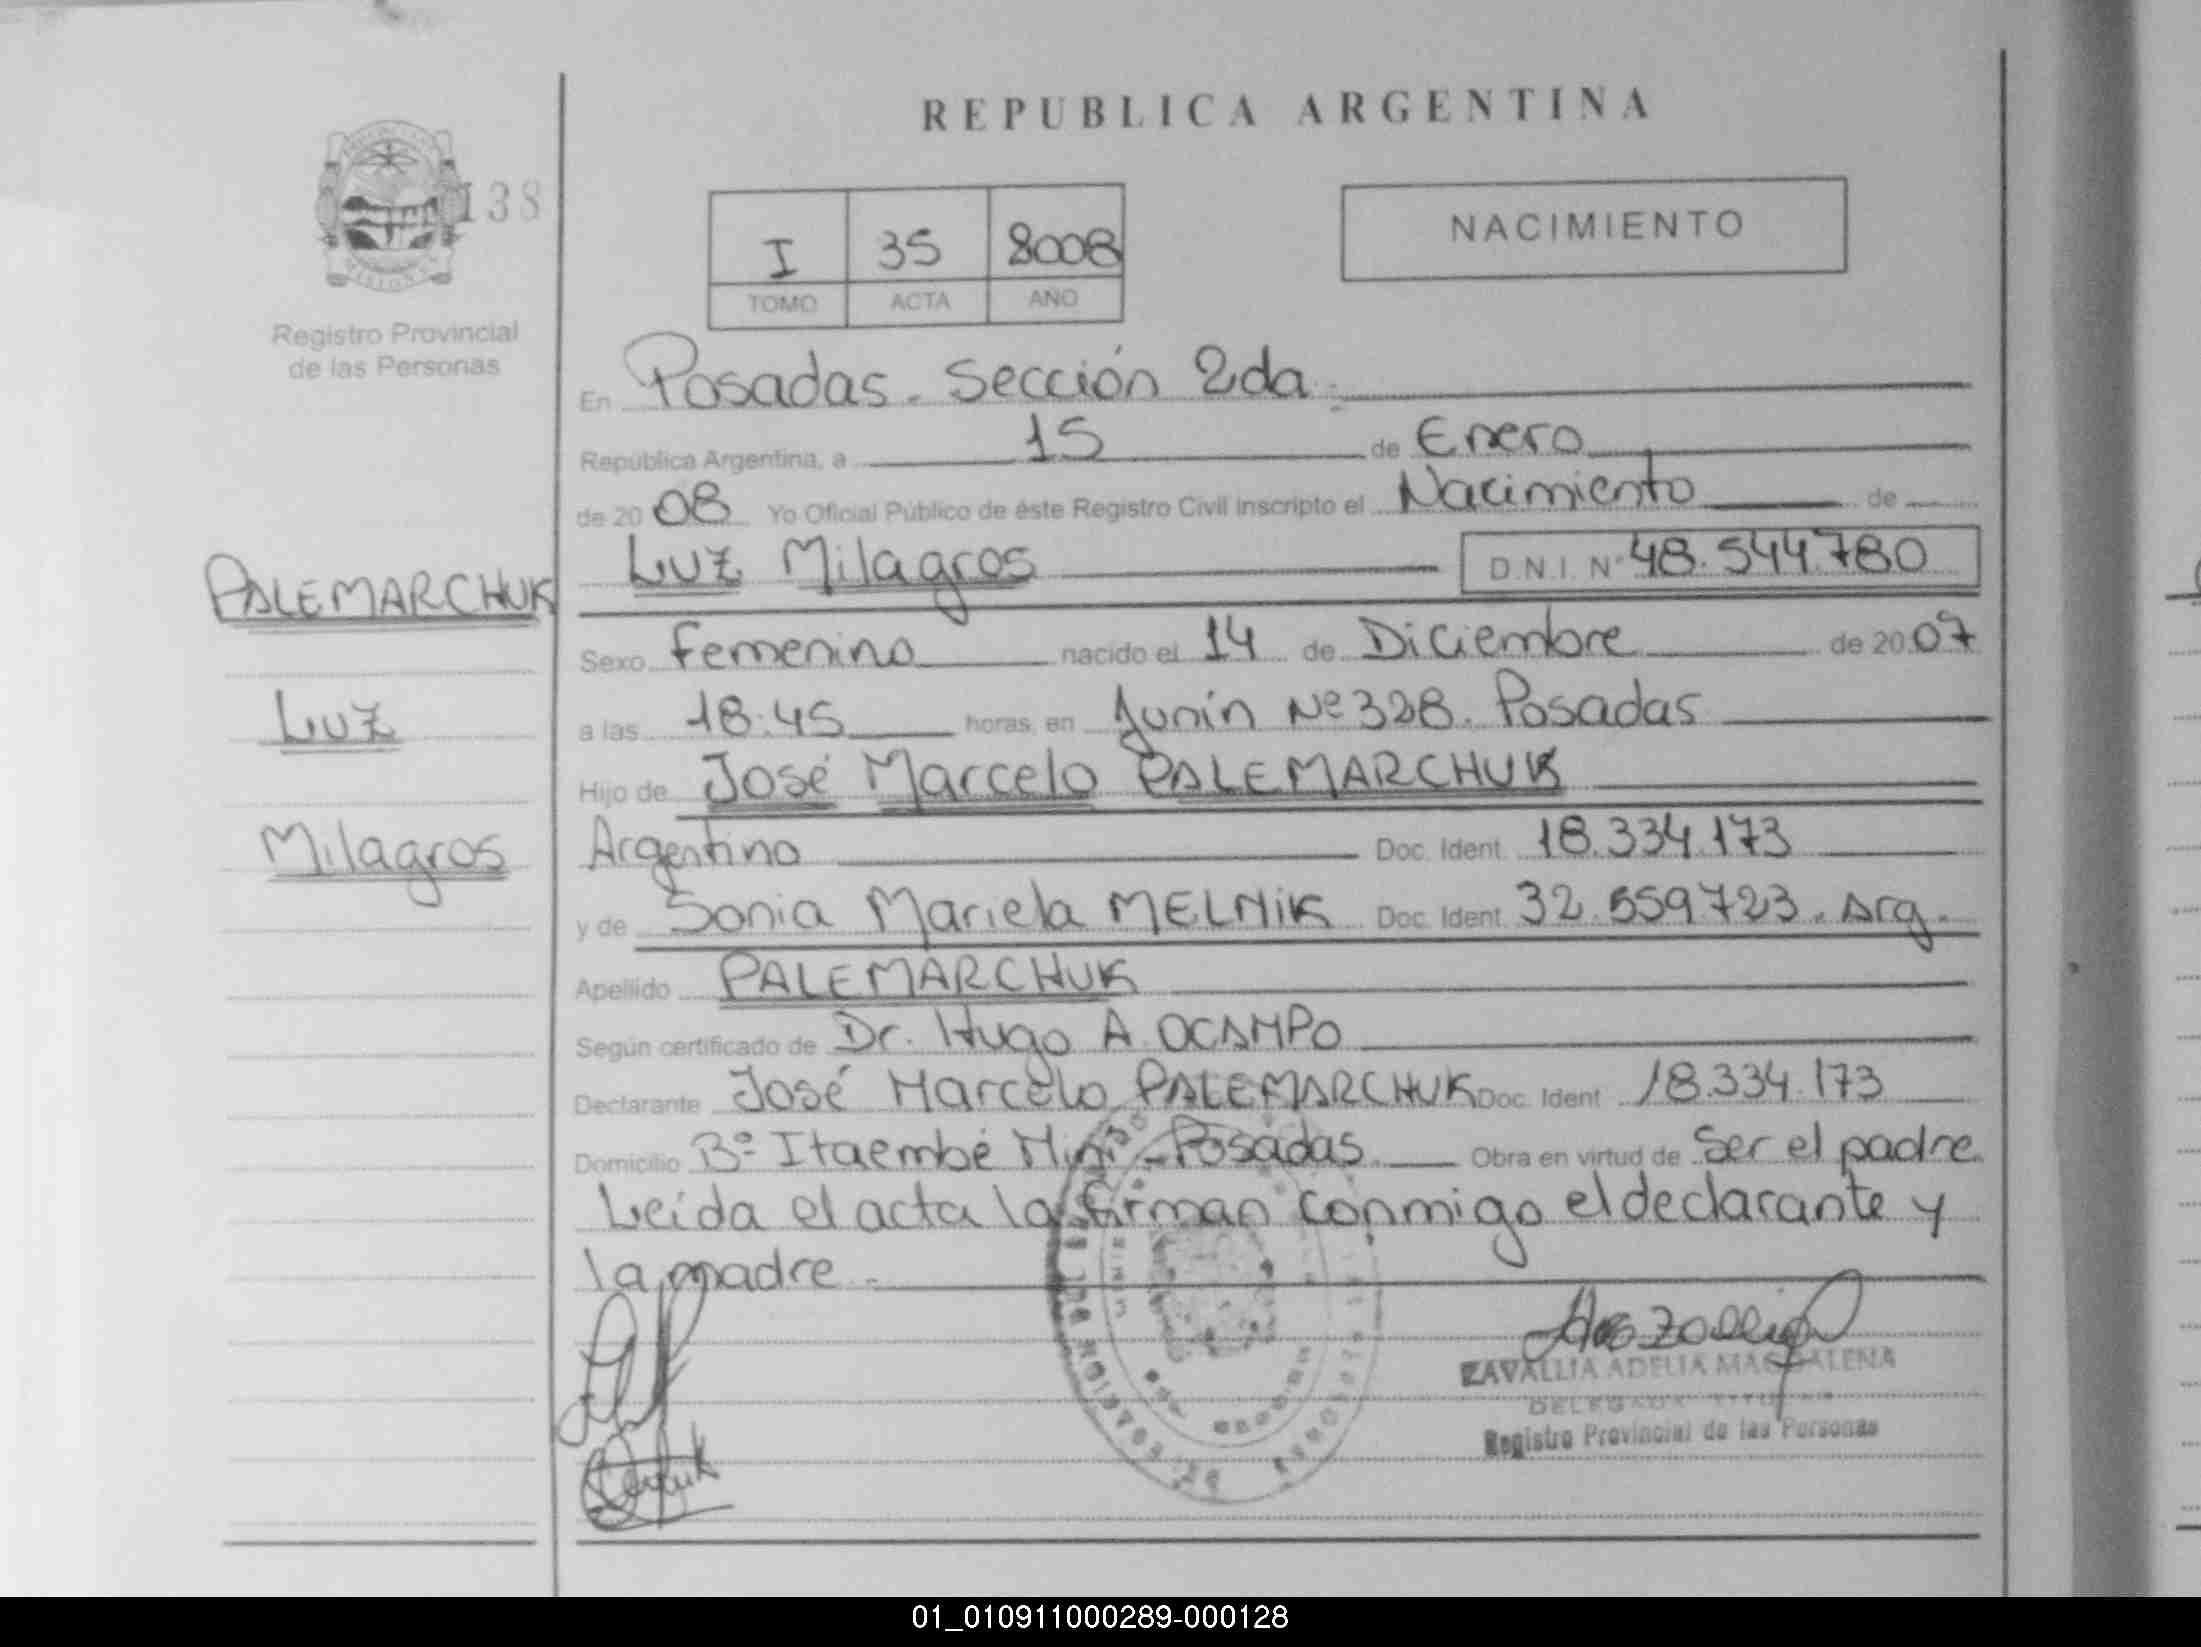 REPUBLICA ARGENTINA
138
I 35 2008
TOMO ACTA AÑO
NACIMIENTO
Registro Provincial
de las Personas
En Posadas. Sección 2da.
República Argentina, a 15 de Enero
de 2008 Yo Oficial Público de éste Registro Civil inscripto el Nacimiento de
Luz Milagros D.N.I. Nº 48.544.780
PALEMARCHUK
Luz
Milagros
Sexo femenino nacido el 14 de Diciembre de 2007
a las 18:45 horas, en Junín Nº 328. Posadas
Hijo de José Marcelo PALEMARCHUK
Argentino Doc. Ident. 18.334.173
y de Sonia Mariela MELNIK Doc. Ident. 32.559.723. Arg.
Apellido PALEMARCHUK
Según certificado de Dr. Hugo A. OCAMPO
Declarante José Marcelo PALEMARCHUK Doc. Ident. 18.334.173
Domicilio Bº Itaembé Mini - Posadas. Obra en virtud de Ser el padre.
Leída el acta la firman conmigo el declarante y
la madre.
ZAVALLIA ADELIA MAGDALENA
Registro Provincial de las Personas
01_010911000289-000128